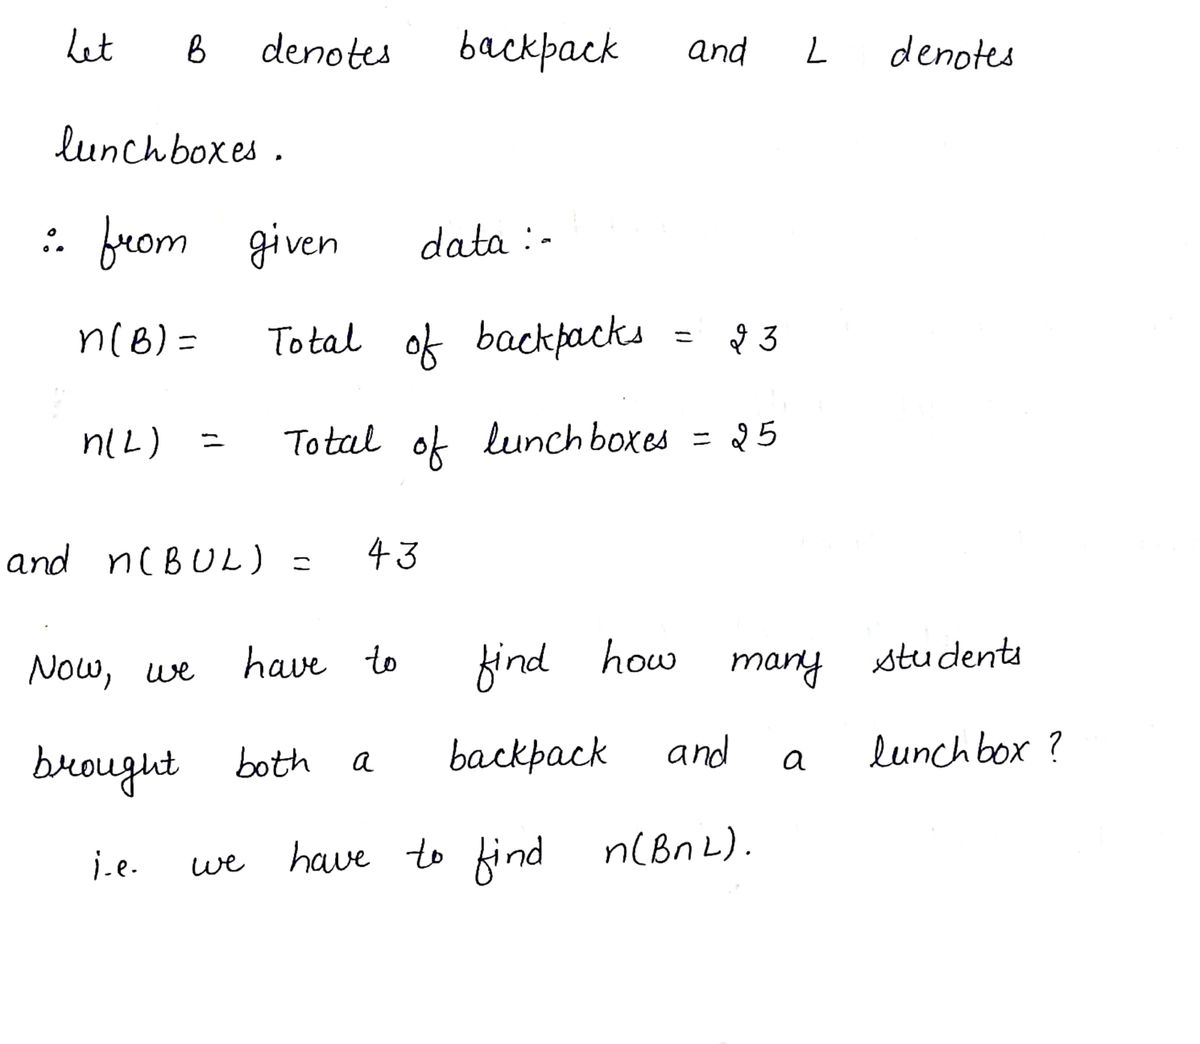 Let B denotes backpack and L denotes
lunchboxes.
∴ from given data :-
n(B) = Total of backpacks = 23
n(L) = Total of lunchboxes = 25
and n(B∪L) = 43
Now, we have to find how many students
brought both a backpack and a lunchbox ?
i.e. we have to find n(B∩L).